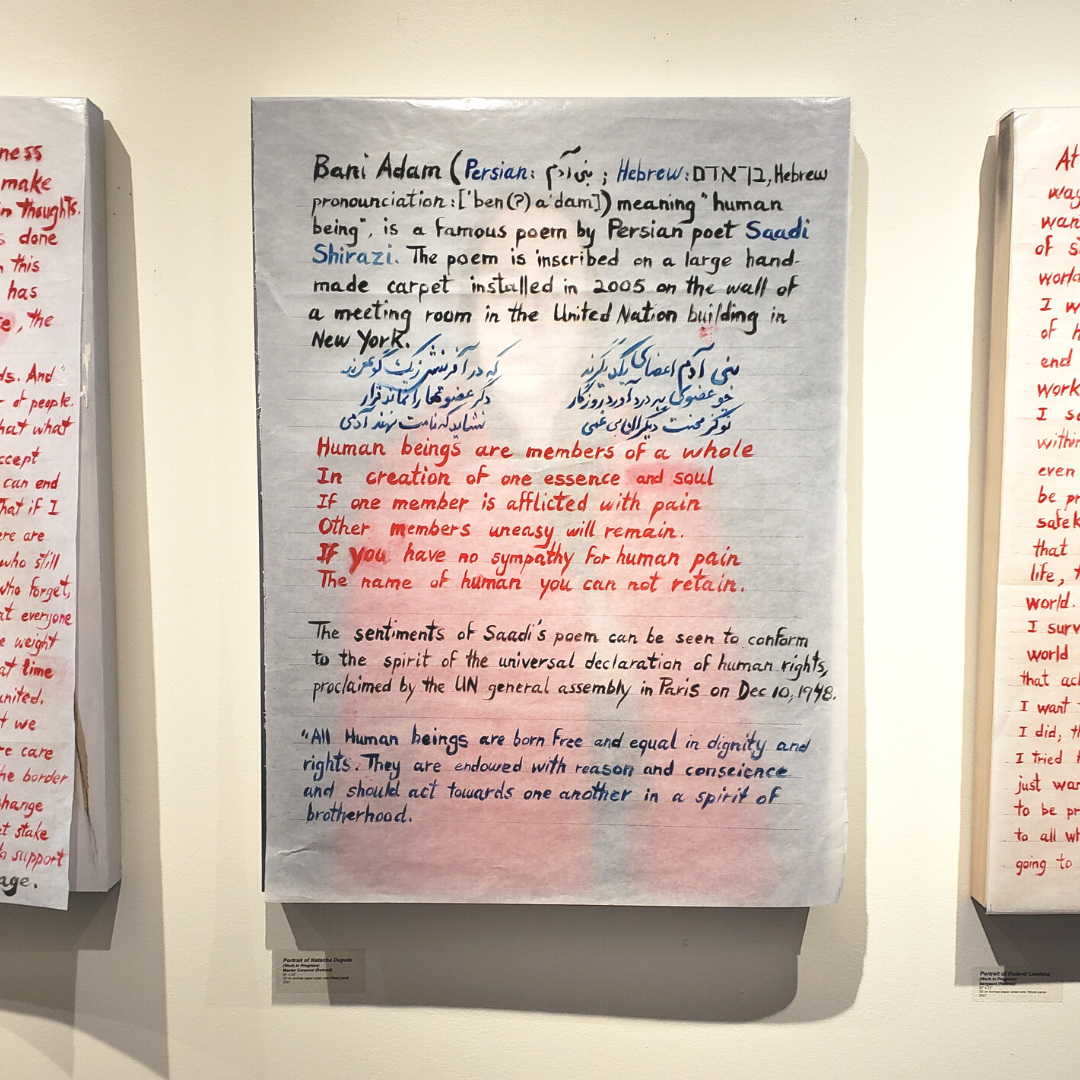 ness
make
in thoughts.
s done
this
has
, the
ds. And
of people.
hat what
ccept
can end
that if I
ere are
who still
who forget,
at everyone
e weight
at time
united.
t we
re care
he border
change
et stake
to support
age.
Bani Adam (Persian: بنی آدم ; Hebrew: בן־אדם, Hebrew
pronounciation: ['ben(?) a'dam]) meaning "human
being", is a famous poem by Persian poet Saadi
Shirazi. The poem is inscribed on a large hand-
made carpet installed in 2005 on the wall of
a meeting room in the United Nation building in
New York.
بنی آدم اعضای یکدیگرند که در آفرینش ز یک گوهرند
چو عضوی به درد آورد روزگار دگر عضوها را نماند قرار
تو کز محنت دیگران بی غمی نشاید که نامت نهند آدمی
Human beings are members of a whole
In creation of one essence and soul
If one member is afflicted with pain
Other members uneasy will remain.
If you have no sympathy for human pain
The name of human you can not retain.
The sentiments of Saadi's poem can be seen to conform
to the spirit of the universal declaration of human rights,
proclaimed by the UN general assembly in Paris on Dec 10, 1948.
"All Human beings are born free and equal in dignity and
rights. They are endowed with reason and conscience
and should act towards one another in a spirit of
brotherhood.
Portrait of Natacha Dupuis
(Work in Progress)
Master Corporal (Retired)
At
way
wan
of s
world
I w
of h
end
work
I s
within
even
be pr
safek
that
life, t
world.
I surv
world
that ac
I want
I did; th
I tried t
just wan
to be pr
to all wh
going to
Portrait of Roland
(Work in Progress)
Sergeant (Retired)